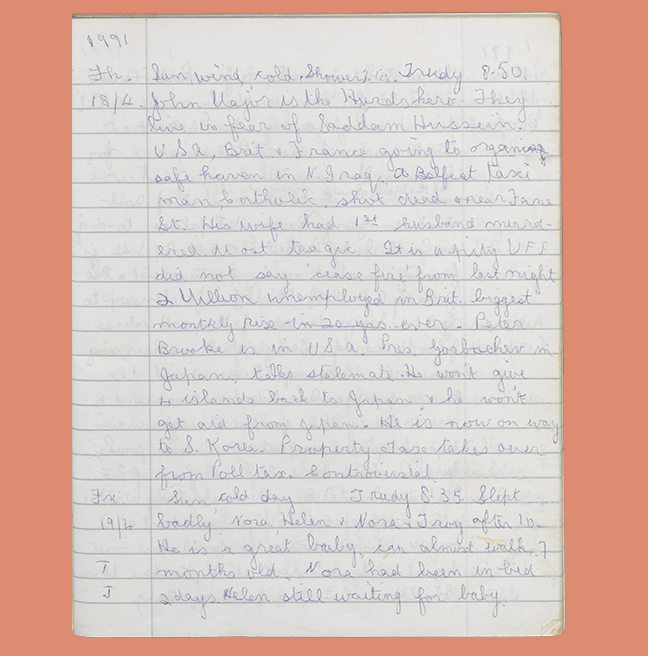 1991
Th. Sun, wind, cold, showers. Trudy 8.50
18/4. John Major is the Kurds hero. They
live in fear of Saddam Hussein.
USA, Brit & France going to organise
safe haven in N. Iraq. A Belfast taxi
man, Catholic, shot dead near
St. His wife had 1st husband murd-
ered. Most tragic. It is a pity UFF
did not say 'cease fire' from last night
2 Million unemployed in Brit. biggest
monthly rise in 20 yrs. ever. Peter
Brooke is in USA. Pres. Gorbachev in
Japan, talks stalemate. He won't give
4 islands back to Japan & he won't
get aid from Japan. He is now on way
to S. Korea. Property Tax takes over
from Poll tax. Controversial.
Fri Sun, cold day Trudy 8.35. Slept
19/4 badly, Nora, Helen & Nora & Troy after 10.
He is a great baby, can almost walk, 7
I months old. Nora had been in bed
J 2 days. Helen still waiting for baby.